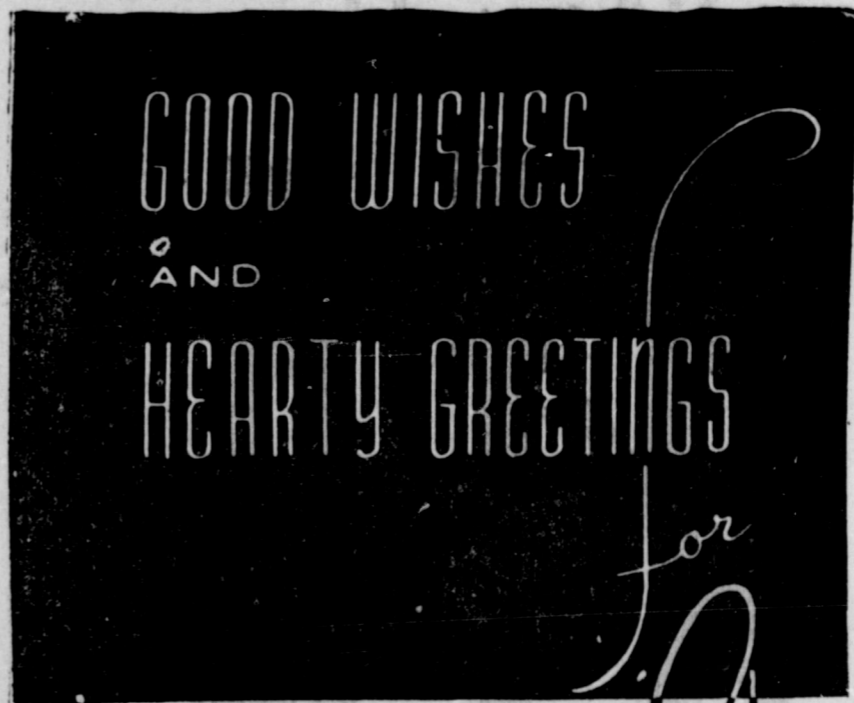 GOOD WISHES
AND
HEARTY GREETINGS
for